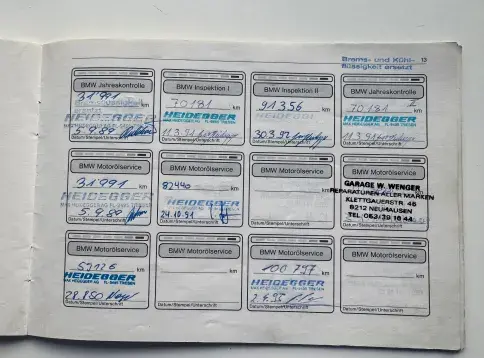 Brems- und Kühl-
flüssigkeit ersetzt
13
BMW Jahreskontrolle
31991 km
HEIDEGGER
5.9.89
Datum/Stempel/Unterschrift
BMW Inspektion I
70181 km
HEIDEGGER
11.3.91
Datum/Stempel/Unterschrift
BMW Inspektion II
91356 km
HEIDEGGER
30.3.92
Datum/Stempel/Unterschrift
BMW Jahreskontrolle
70181 km
HEIDEGGER
11.3.91
Datum/Stempel/Unterschrift
BMW Motorölservice
31991 km
HEIDEGGER
MAX HEIDEGGER AG FL-9495 TRIESEN
5.9.89
Datum/Stempel/Unterschrift
BMW Motorölservice
82440 km
HEIDEGGER
24.10.91
Datum/Stempel/Unterschrift
BMW Motorölservice
km
Datum/Stempel/Unterschrift
BMW Motorölservice
GARAGE W. WENGER
REPARATUREN ALLER MARKEN
KLETTGAUERSTR. 46
8212 NEUHAUSEN
TEL. 053/
BMW Motorölservice
59126 km
HEIDEGGER
MAX HEIDEGGER AG FL-9495 TRIESEN
Datum/Stempel/Unterschrift
BMW Motorölservice
km
Datum/Stempel/Unterschrift
BMW Motorölservice
100797 km
HEIDEGGER
Datum/Stempel/Unterschrift
BMW Motorölservice
km
Datum/Stempel/Unterschrift